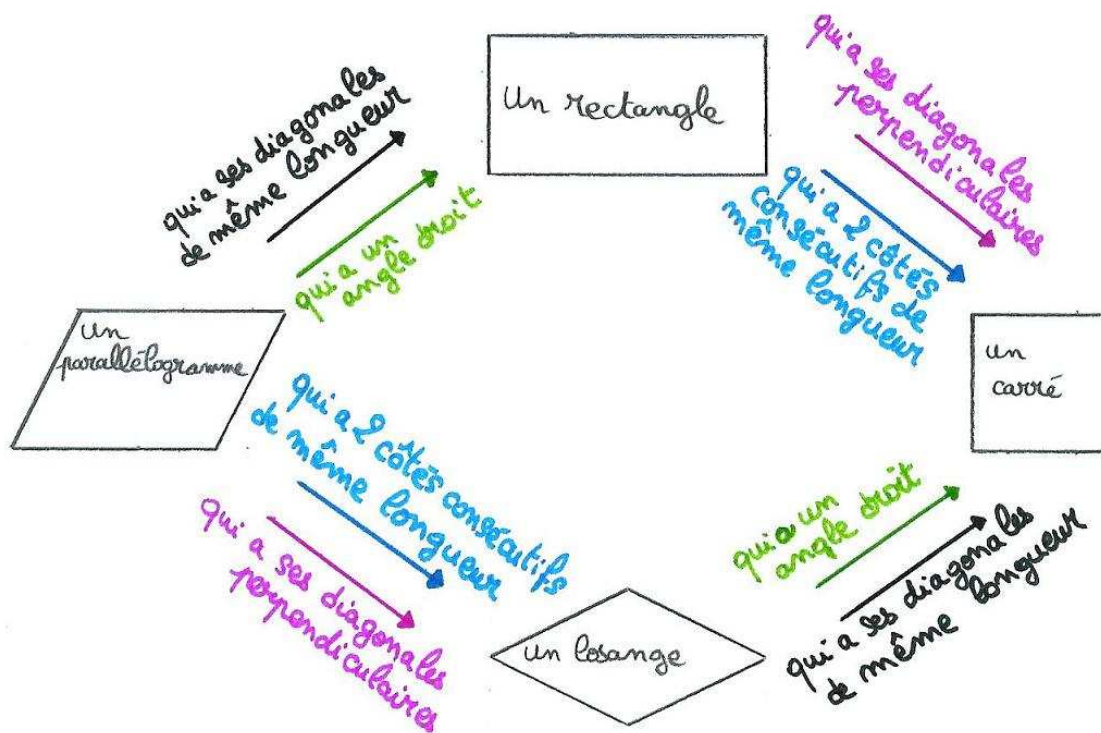 Un rectangle
qui a ses diagonales
de même longueur
qui a un
angle droit
qui a ses diagonales
perpendiculaires
qui a 2 côtés
consécutifs de
même longueur
un
parallélogramme
un
carré
qui a 2 côtés consécutifs
de même longueur
qui a ses diagonales
perpendiculaires
un losange
qui a un
angle droit
qui a ses diagonales
de même longueur